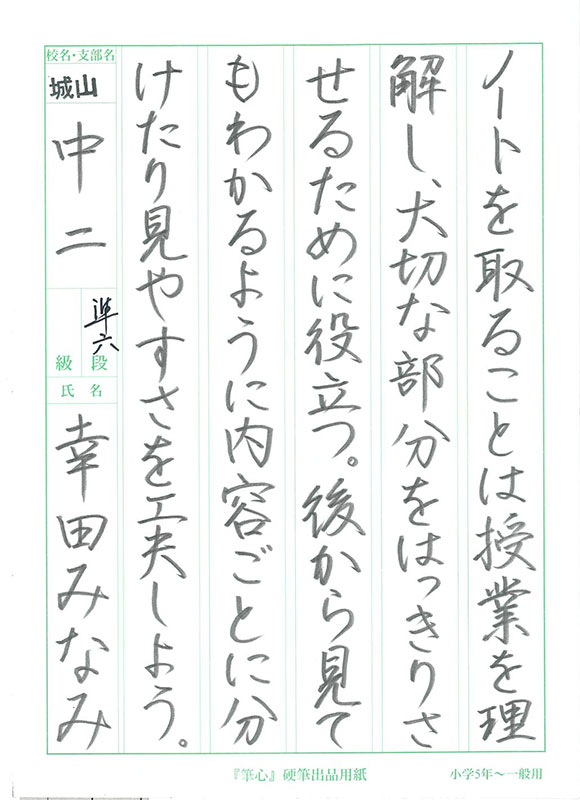 ノートを取ることは授業を理
解し、大切な部分をはっきりさ
せるために役立つ。後から見て
もわかるように内容ごとに分
けたり見やすさを工夫しよう。
校名・支部名
城山
中二
準六
段
級
氏名
幸田みなみ
『筆心』硬筆出品用紙
小学5年〜一般用